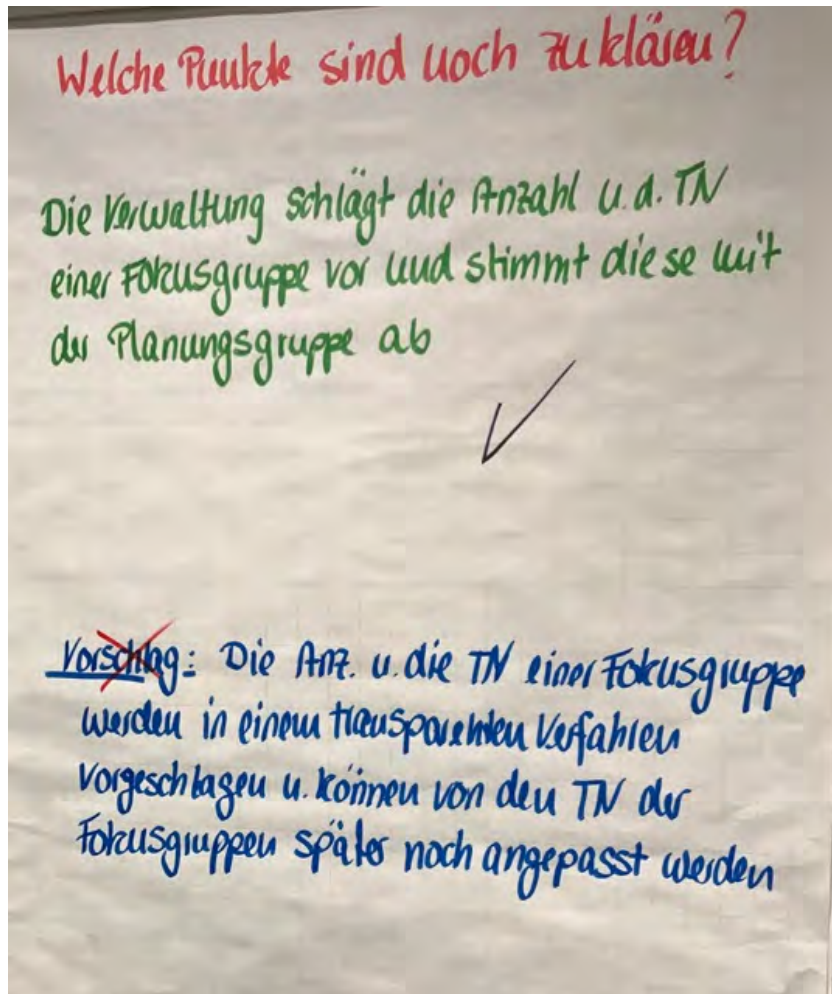 Welche Punkte sind noch zu klären?
Die Verwaltung schlägt die Anzahl u. d. TN
einer Fokusgruppe vor und stimmt diese mit
der Planungsgruppe ab
Vorschlag: Die Anz. u. die TN einer Fokusgruppe
werden in einem transparenten Verfahren
vorgeschlagen u. können von den TN der
Fokusgruppen später noch angepasst werden